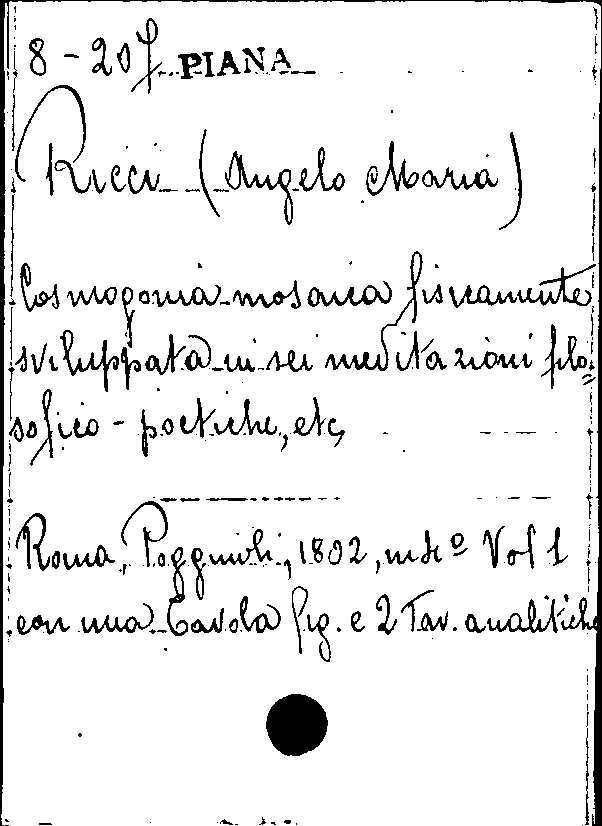 8-20 f PIANA
Ricci (Angelo Maria)
Cosmogonia mosaica fisicamente
sviluppata in sei meditazioni filo=
sofico - poetiche, etc,
Roma, Poggioli, 1802, in 4º Vol 1
con una Tavola fig. e 2 Tav. analitiche